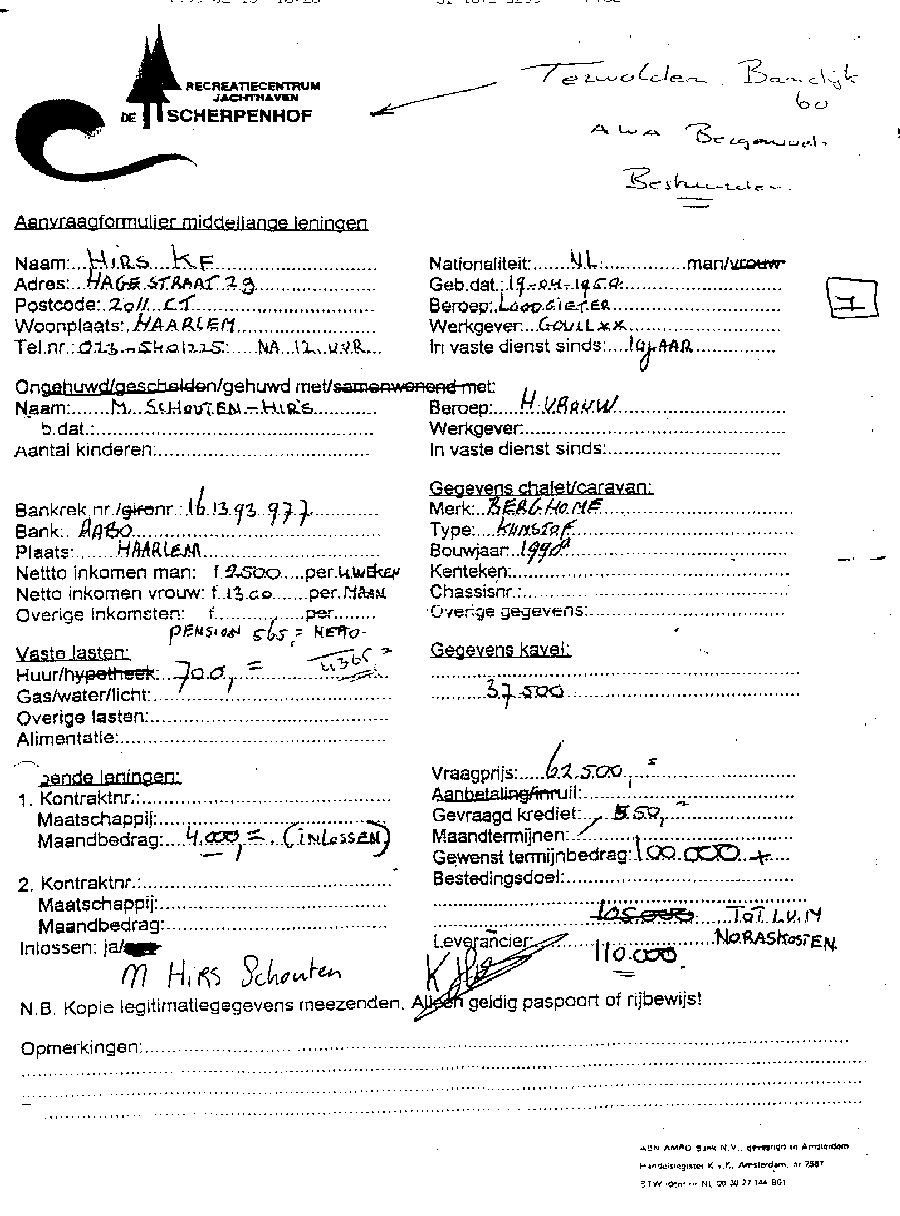 RECREATIECENTRUM
JACHTHAVEN
DE SCHERPENHOF
Terwolden Bandijk
60
Aanvraagformulier middellange leningen
Naam: HIRS KF
Adres: HAGESTRAAT 29
Postcode: 2011 CT
Woonplaats: HAARLEM
Tel.nr.: 023-5401225 NA 12 UVR
Nationaliteit: NL man/vrouw
Geb.dat.: 19-04-1950
Beroep: LOODGIETER
Werkgever:
In vaste dienst sinds: 19 JAAR
1
Ongehuwd/gescheiden/gehuwd met/samenwonend met:
Naam: M. SCHOUTEN-HIRS
b.dat.:
Aantal kinderen:
Beroep: H.VROUW
Werkgever:
In vaste dienst sinds:
Bankrek.nr./gironr.: 16.13.93.977
Bank:
Plaats: HAARLEM
Nettto inkomen man: f 2500 per 4 WEKEN
Netto inkomen vrouw: f 1300 per MAAN
Overige inkomsten: f per
PENSION 565,= NETO
4365
Gegevens chalet/caravan:
Merk: BERGHOME
Type: KUNSTOF
Bouwjaar: 1990
Kenteken:
Chassisnr.:
Overige gegevens:
Vaste lasten:
Huur/hypotheek: 700,=
Gas/water/licht:
Overige lasten:
Alimentatie:
Gegevens kavel:
37.500
pende leningen:
1. Kontraktnr.:
Maatschappij:
Maandbedrag: 4.000,= (INLOSSEN)
2. Kontraktnr.:
Maatschappij:
Maandbedrag:
Inlossen: ja/
Vraagprijs: 62.500,=
Aanbetaling/inruil:
Gevraagd krediet: 550,=
Maandtermijnen:
Gewenst termijnbedrag: 100.000 +
Bestedingsdoel:
105.000 TOT I.V.M
Leverancier: 110.000 NORASKOSTEN
M HIRS Schouten
N.B. Kopie legitimatiegegevens meezenden. Alleen geldig paspoort of rijbewijs!
Opmerkingen:
ABN AMRO Bank N.V., gevestigd te Amsterdam
Handelsregister K.v.K. Amsterdam, nr